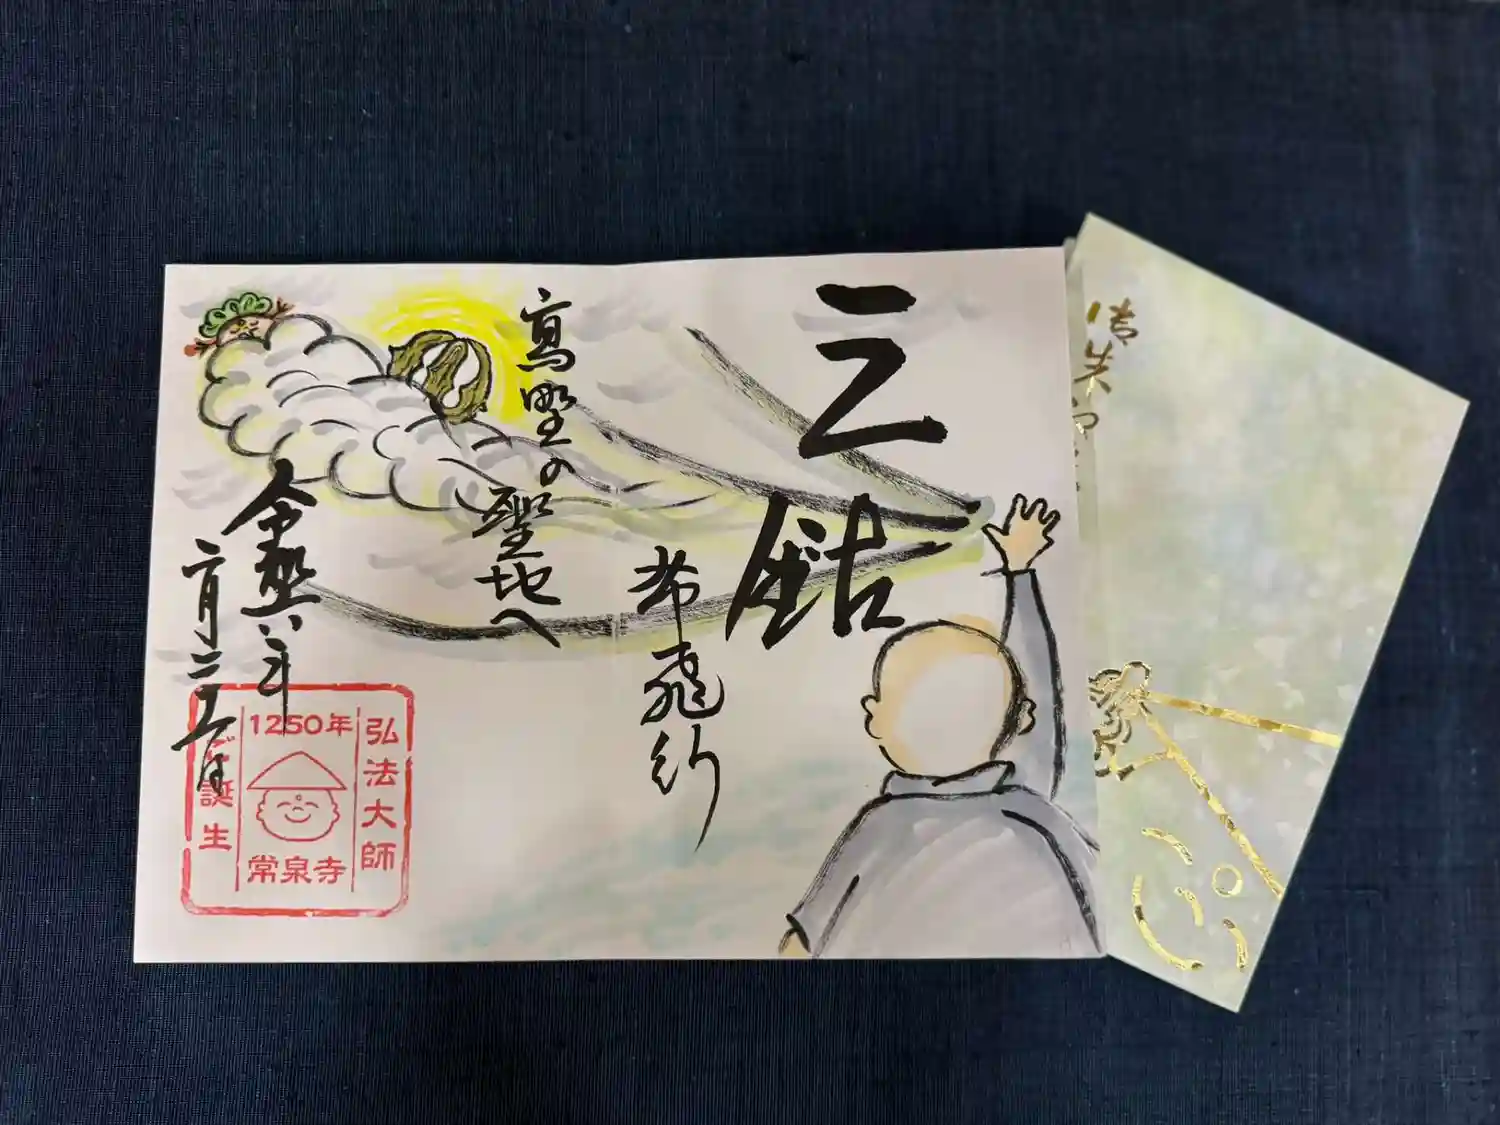 三鈷
飛行
高野の
聖地へ
令和六年
二月二十五日
弘法大師
1250年
ご誕生
常泉寺
御朱印